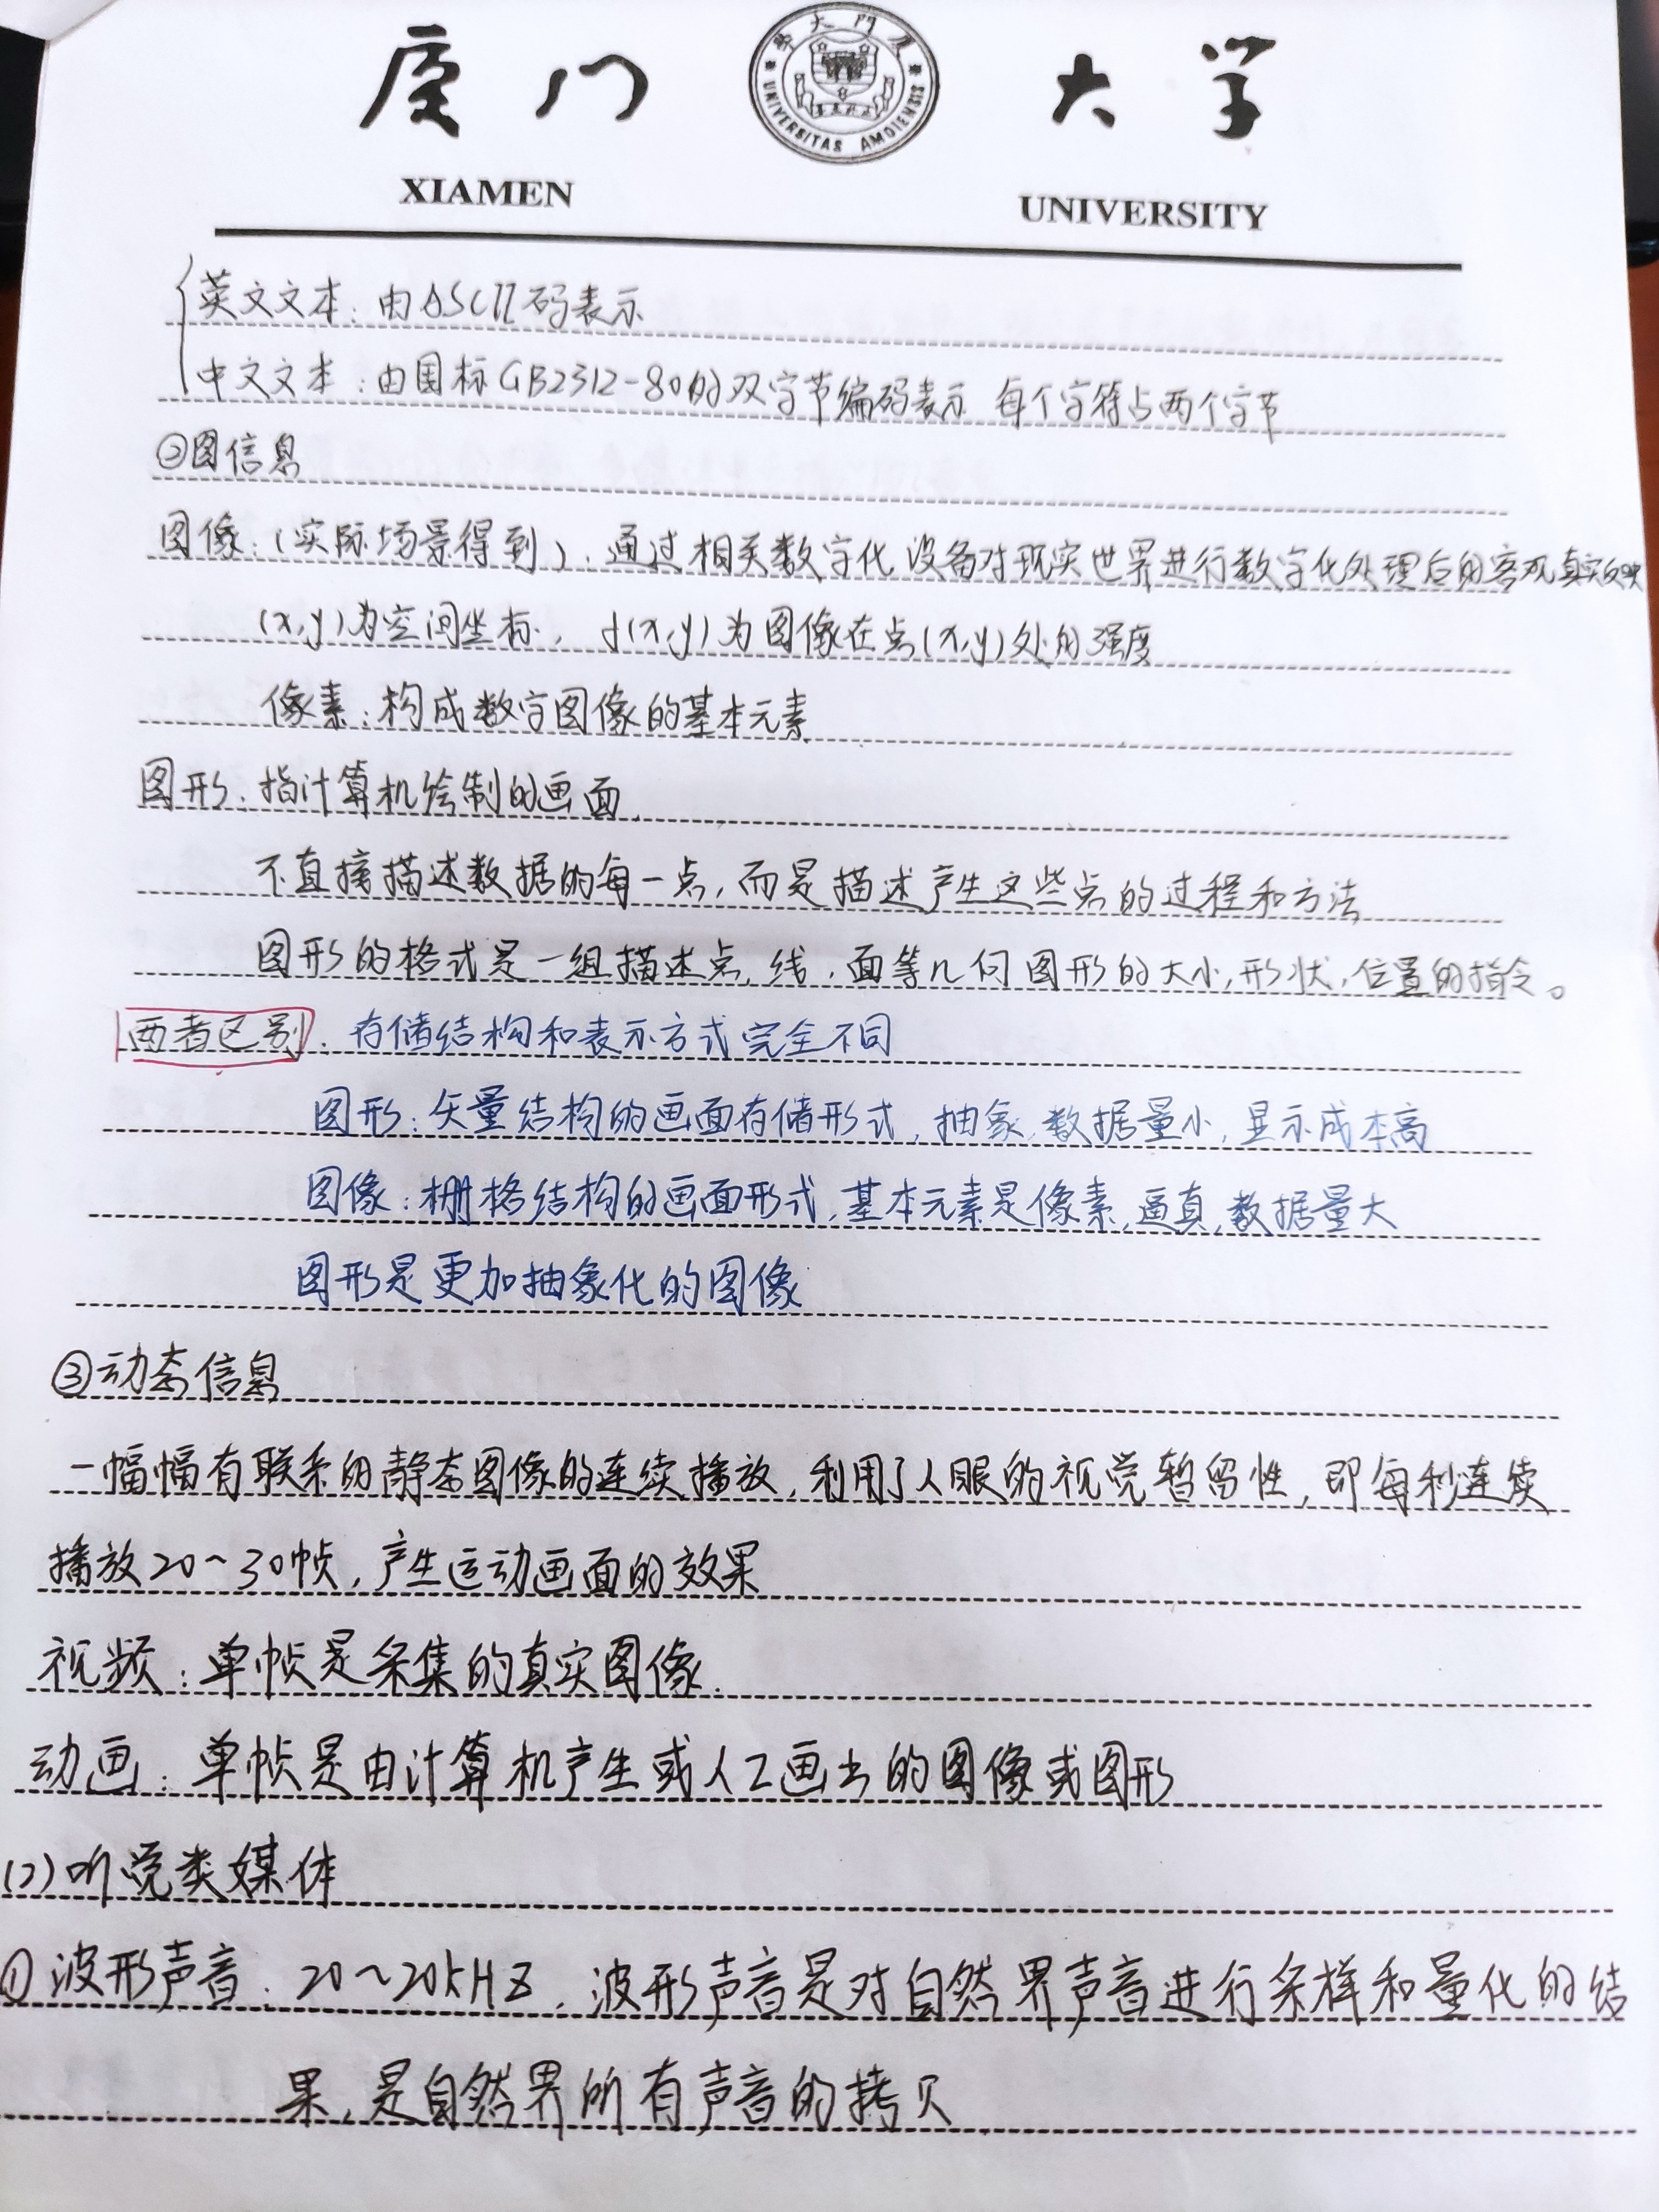 厦门大学
厦门大学
UNIVERSITAS AMOIENSIS
XIAMEN UNIVERSITY
英文文本：由ASCII码表示
中文文本：由国标GB2312-80的双字节编码表示 每个字符占两个字节
②图信息
图像：(实际场景得到)：通过相关数字化设备对现实世界进行数字化处理后的客观真实反映
(x,y)为空间坐标，f(x,y)为图像在点(x,y)处的强度
像素：构成数字图像的基本元素
图形：指计算机绘制的画面
不直接描述数据的每一点，而是描述产生这些点的过程和方法
图形的格式是一组描述点，线，面等几何图形的大小，形状，位置的指令。
两者区别：存储结构和表示方式完全不同
图形：矢量结构的画面存储形式，抽象，数据量小，显示成本高
图像：栅格结构的画面形式，基本元素是像素，逼真，数据量大
图形是更加抽象化的图像
③动态信息
一幅幅有联系的静态图像的连续播放，利用了人眼的视觉暂留性，即每秒连续
播放20~30帧，产生运动画面的效果
视频：单帧是采集的真实图像.
动画：单帧是由计算机产生或人工画出的图像或图形
(2)听觉类媒体
①波形声音：20~20kHz，波形声音是对自然界声音进行采样和量化的结
果，是自然界所有声音的拷贝